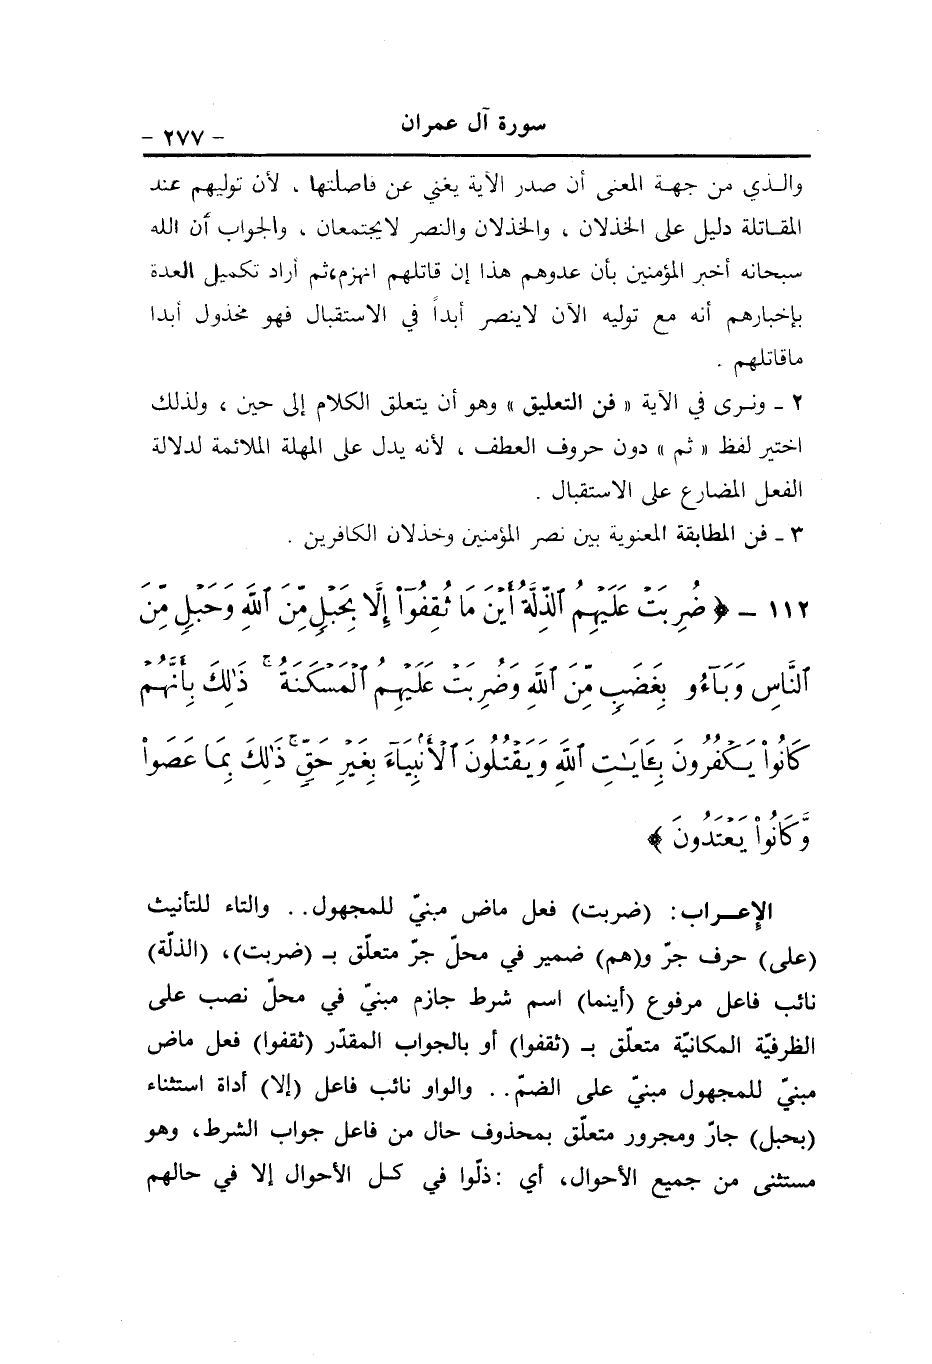 سورة آل عمران
- ٢٧٧ -
والـذي من جهـة المعنى أن صدر الآية يغني عن فاصلتها ، لأن توليهم عند
المقـاتلة دليل على الخذلان ، والخذلان والنصر لايجتمعان ، والجواب أن الله
سبحانه أخبر المؤمنين بأن عدوهم هذا إن قاتلهم انهزم،ثم أراد تكميل العدة
بإخبارهم أنه مع توليه الآن لاينصر أبداً في الاستقبال فهو مخذول أبدا
ماقاتلهم .
٢ - ونـرى في الآية « فن التعليق » وهو أن يتعلق الكلام إلى حين ، ولذلك
اختير لفظ « ثم » دون حروف العطف ، لأنه يدل على المهلة الملائمة لدلالة
الفعل المضارع على الاستقبال .
٣ - فن المطابقة المعنوية بين نصر المؤمنين وخذلان الكافرين .
١١٢ - ﴿ ضُرِبَتْ عَلَيْهِمُ ٱلذِّلَّةُ أَيْنَ مَا ثُقِفُوٓاْ إِلَّا بِحَبْلٍ مِّنَ ٱللَّهِ وَحَبْلٍ مِّنَ
ٱلنَّاسِ وَبَآءُو بِغَضَبٍ مِّنَ ٱللَّهِ وَضُرِبَتْ عَلَيْهِمُ ٱلْمَسْكَنَةُ ۚ ذَٰلِكَ بِأَنَّهُمْ
كَانُواْ يَكْفُرُونَ بِـَٔايَـٰتِ ٱللَّهِ وَيَقْتُلُونَ ٱلْأَنۢبِيَآءَ بِغَيْرِ حَقٍّ ۚ ذَٰلِكَ بِمَا عَصَواْ
وَّكَانُواْ يَعْتَدُونَ ﴾
الإعـراب: (ضربت) فعل ماض مبنيّ للمجهول.. والتاء للتأنيث
(على) حرف جرّ و(هم) ضمير في محلّ جرّ متعلّق بـ (ضربت)، (الذلّة)
نائب فاعل مرفوع (أينما) اسم شرط جازم مبنيّ في محلّ نصب على
الظرفيّة المكانيّة متعلّق بـ (ثقفوا) أو بالجواب المقدّر (ثقفوا) فعل ماض
مبنيّ للمجهول مبنيّ على الضمّ.. والواو نائب فاعل (إلا) أداة استثناء
(بحبل) جارّ ومجرور متعلّق بمحذوف حال من فاعل جواب الشرط، وهو
مستثنى من جميع الأحوال، أي :ذلّوا في كـل الأحوال إلا في حالهم